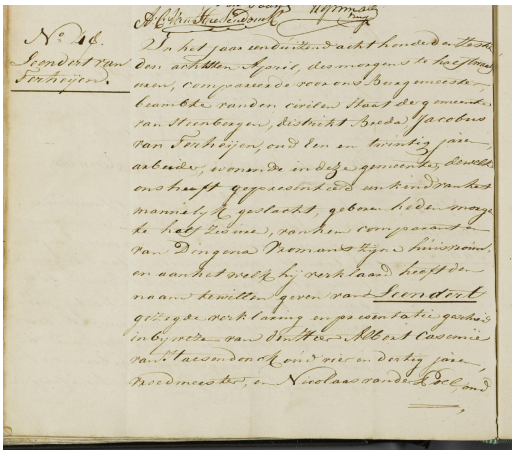 A. C. van Haesendonck
No. 48.
Leendert van
Terheijen.
In het jaar een duizend acht honderd en
den achtsten April, des morgens te half twaalf
uren, compareerde voor ons Burgemeester,
beambte van den civilen Staat de gemeente
van Steenbergen, distrikt Breda Jacobus
van Terheijen, oud een en twintig jaren
arbeider, wonende in deze gemeente, dewelke
ons heeft gepresenteerd een kind van het
mannelijk geslacht, geboren heden morge
te half zes ure, van hem comparant en
van Dingena Vromans zijne huisvrouw
en aan het welk hij verklaard heeft den
naam te willen geven van Leendert
gezegde verklaring en presentatie geschied
in bijweze van den Heer Albert Casemie
van Haesendonck oud vier en dertig jaren,
vroedmeester, en Nicolaas van der Poel, oud